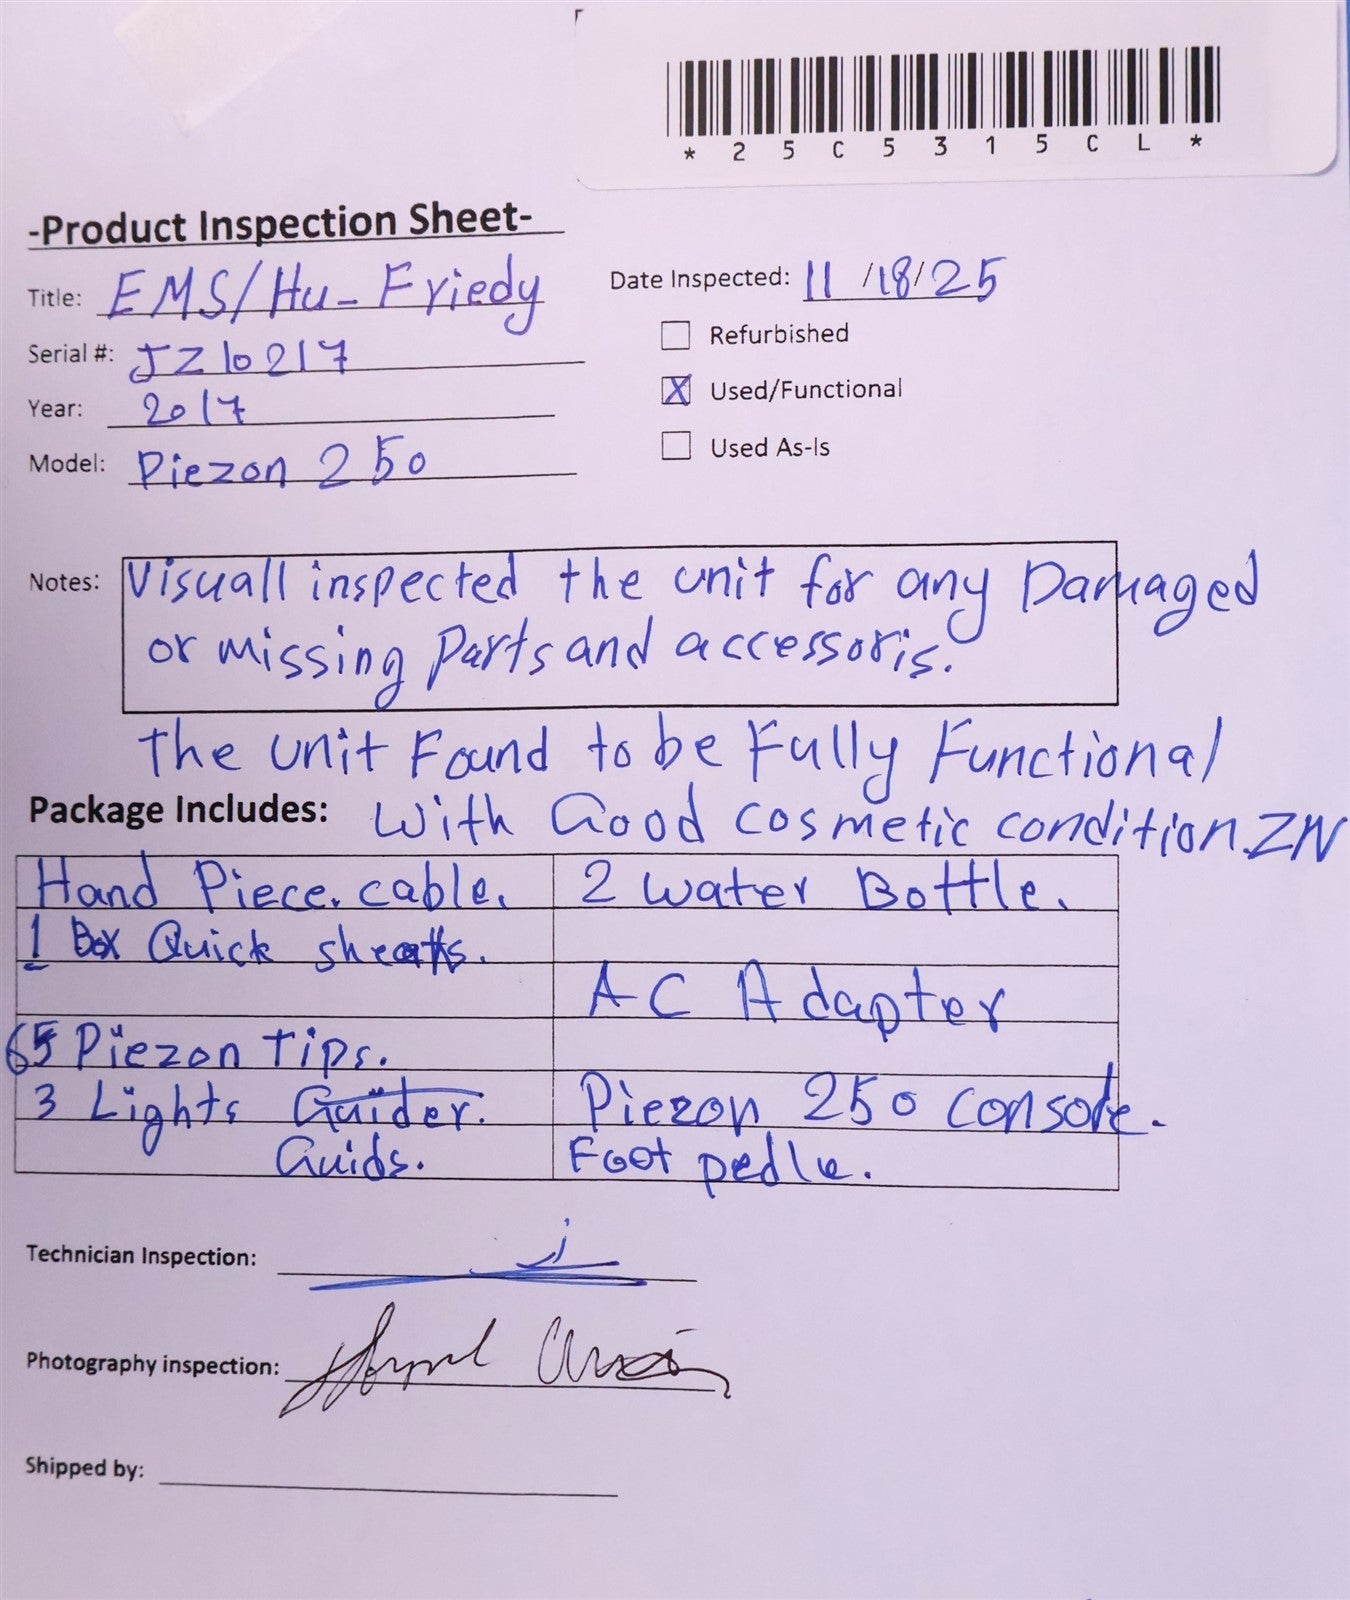 * 2 5 C 5 3 1 5 C L *
-Product Inspection Sheet-
Title: EMS/Hu-Friedy
Date Inspected: 11/18/25
Serial #: JZ10217
Refurbished
Year: 2017
X Used/Functional
Model: Piezon 250
Used As-Is
Notes: Visuall inspected the unit for any Damaged
or missing Parts and accessoris.
The unit Found to be Fully Functional
Package Includes: with Good cosmetic condition. ZN
Hand Piece. cable. 2 water Bottle.
1 Box Quick sheaths.
AC Adapter
65 Piezon tips.
3 Lights Guider. Piezon 250 console.
Guids. Foot pedle.
Technician Inspection:
Photography inspection:
Shipped by: